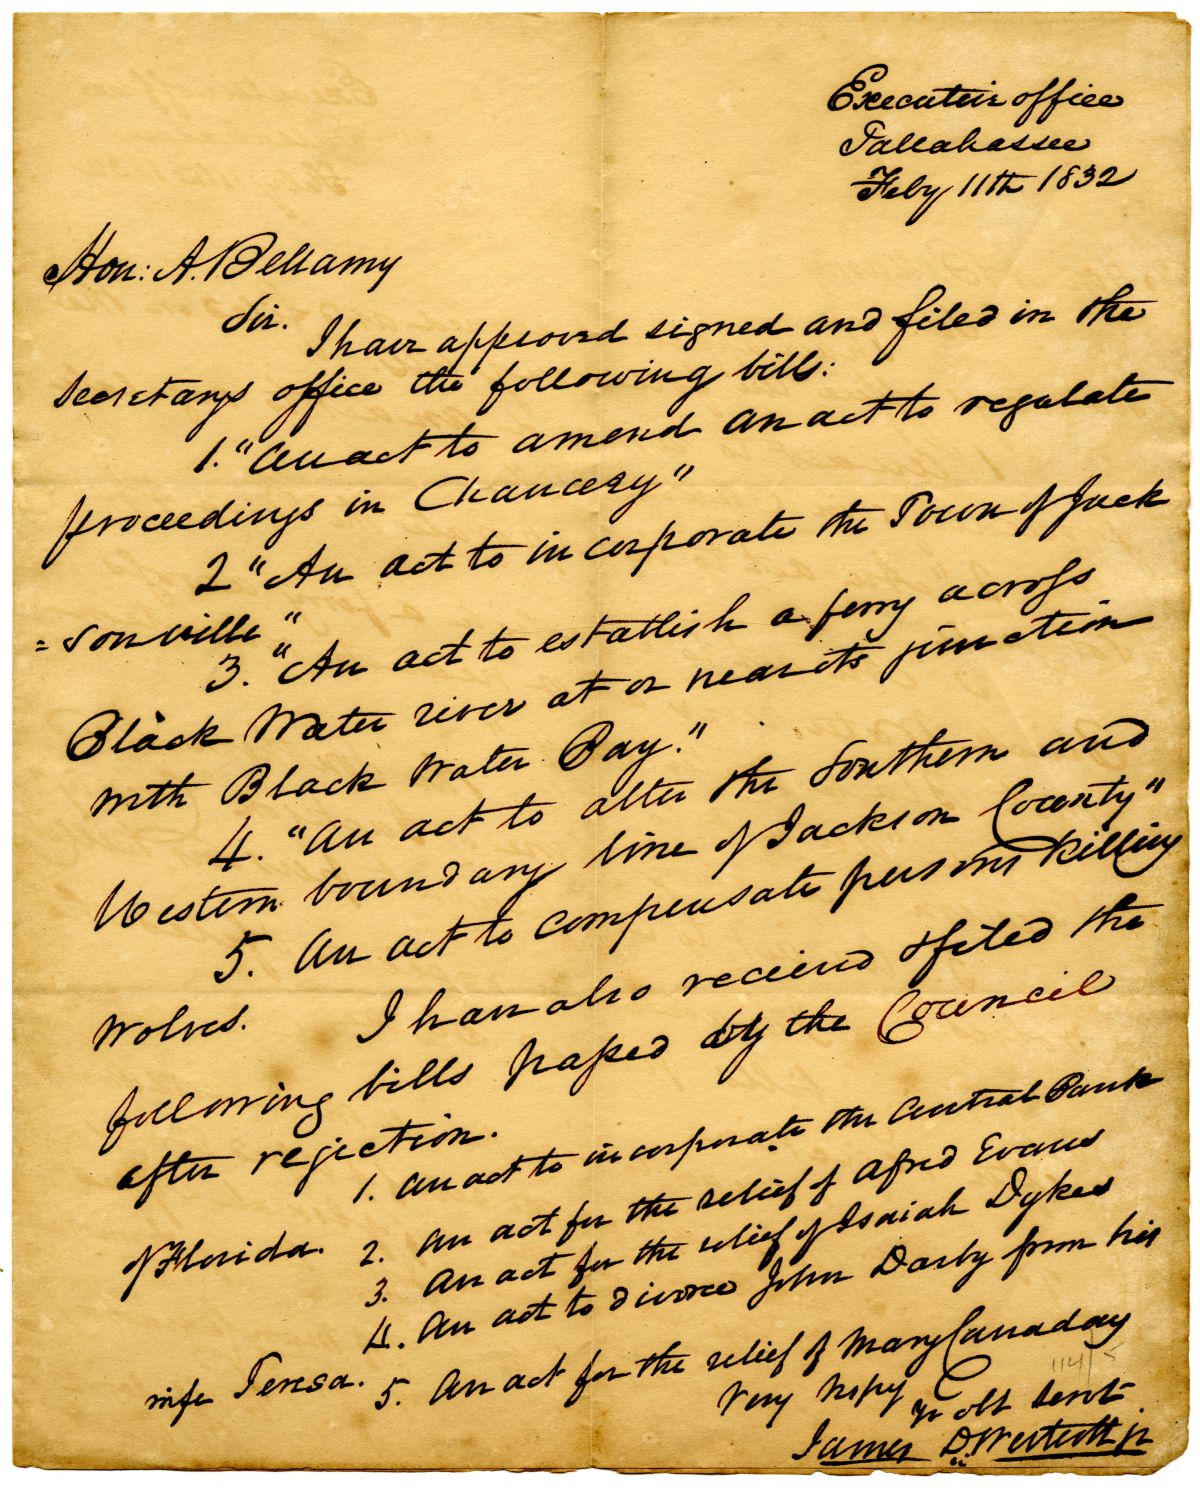 Executive office
Tallahassee
Feby 11th 1832
Hon: A. Bellamy
Sir.
I have approved signed and filed in the
Secretarys office the following bills:
1. "An act to amend an act to regulate
proceedings in Chancery"
2 "An act to incorporate the Town of Jack
=sonville"
3. "An act to establish a ferry across
Black Water river at or near its junction
with Black Water Bay."
4. "An act to alter the Southern and
Western boundary line of Jackson County"
5. An act to compensate persons killing
Wolves. I have also recieved & filed the
following bills passed by the Council
after rejection.
1. An act to incorporate the Central Bank
of Florida.
2. An act for the relief of Alfred Evans
3. An act for the relief of Isaiah Dykes
4. An act to divorce John Darby from his
wife Teresa.
5. An act for the relief of Mary Canaday
Very Respy
yr obt Servt
James D. Westcott jr
114/5